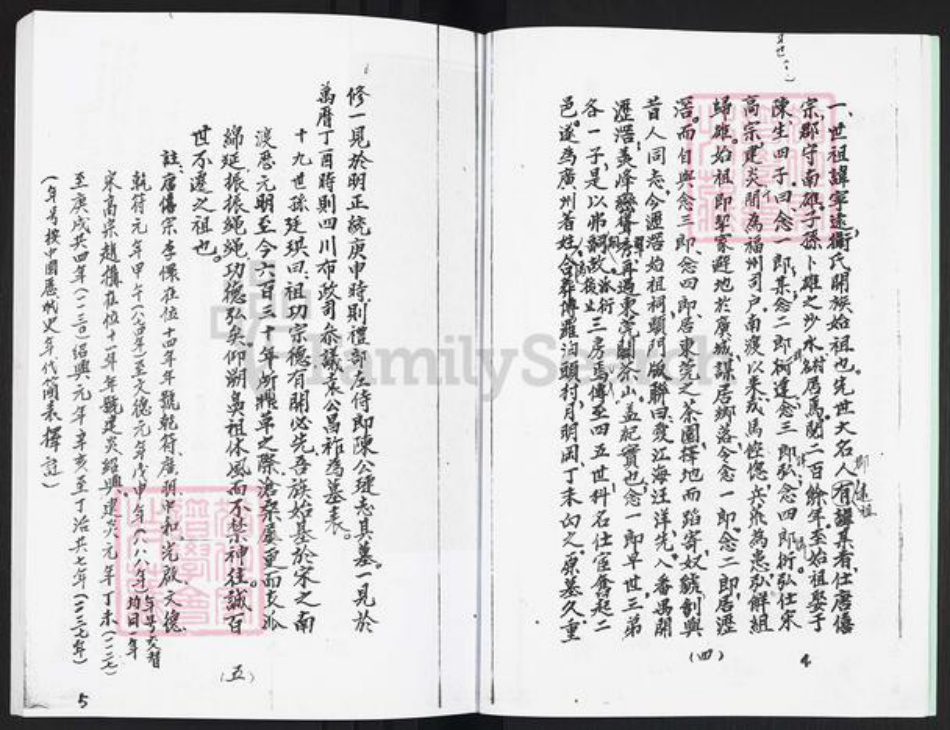 一、世祖諱寧遠衞氏開族始祖也。先世大名人有諱其者仕唐僖
宗郡守南雄子孫卜雄之沙水村居焉閱二百餘年至始祖娶于
陳生四子曰念一郎其念二郎柯逢念三郎弘念四郎衍弘仕宋
高宗建炎間為福州司户南渡以來戎馬倥偬兵燹為患弘解組
歸雄始祖即挈家避地於廣城謀居鄉落令念一郎念二郎居瀝
滘而自與念三郎念四郎居東莞之茶園擇地而蹈寄奴貌創與
昔人同志今瀝滘始祖祠頭門版聯曰愛江海汪洋先入番禺開
瀝滘羨峰巒聳秀再遇東莞闢茶山盖紀實也念一郎早世三弟
各一子是以弗嗣故後三房焉傳至四五世科名仕宦奮起二
邑遂為廣州著姓合葬博羅泊頭村月明岡丁未向之原墓久重
(四)
4
修一見於明正統庚申時則禮部左侍郎陳公璉志其墓一見於
萬曆丁酉時則四川布政司叅議袁公昌祚為墓表。
十九世孫廷珙曰祖功宗德有開必先吾族始基於宋之南
渡歷元明至今六百三十年所鼎革之際滄桑屢更而支派
綿延振振繩繩功德弘矣仰溯鼻祖休風而不禁神往誠百
世不遷之祖也。
註唐僖宗李儇在位十四年年號乾符廣明中和光啟文德
乾符元年甲午(八七四年)至文德元年戊申年(八八八年)均曰一年
年號交替
宋高宗趙構在位十二年年號建炎紹興建炎元年丁未(一一二七)
至庚戌共四年(一一三〇)紹興元年辛亥至丁治共七年(一一三七年)
(年号按中國歷代史年代簡表擇註)
(五)
5
FamilySearch